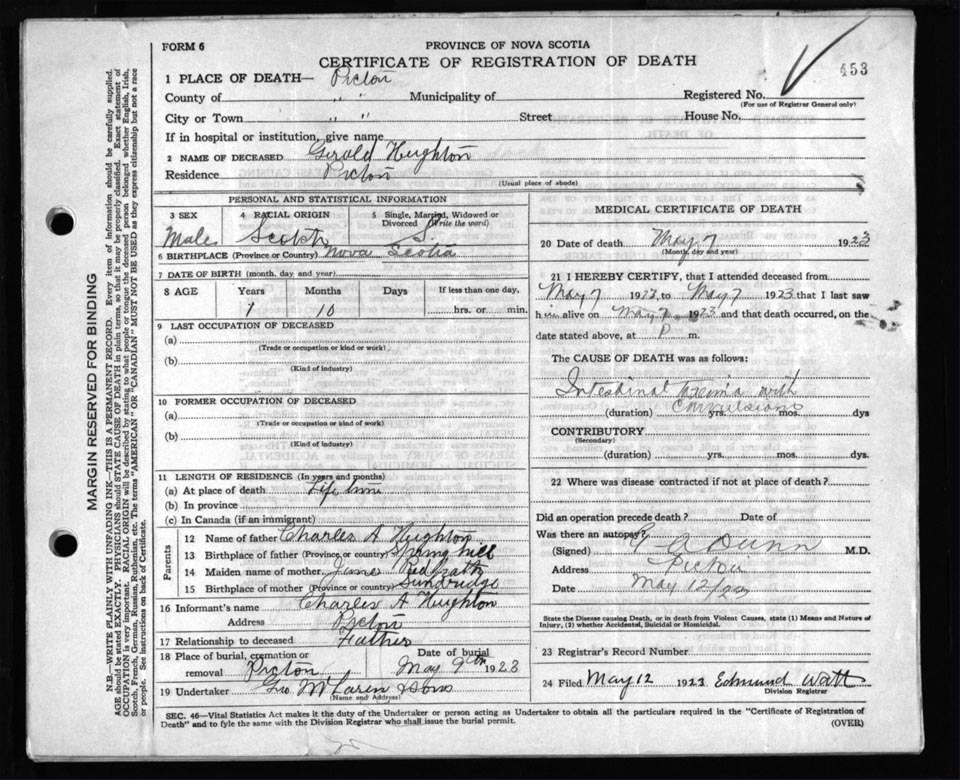 FORM 6
PROVINCE OF NOVA SCOTIA
CERTIFICATE OF REGISTRATION OF DEATH
453
1 PLACE OF DEATH— Pictou
County of " " Municipality of Registered No.
(For use of Registrar General only)
City or Town " " Street House No.
If in hospital or institution, give name
2 NAME OF DECEASED Gerold Heighton
Residence Pictou
(Usual place of abode)
PERSONAL AND STATISTICAL INFORMATION
3 SEX 4 RACIAL ORIGIN 5 Single, Married, Widowed or Divorced (Write the word)
Male Scotch S.
6 BIRTHPLACE (Province or Country) Nova Scotia
7 DATE OF BIRTH (month, day and year)
8 AGE Years Months Days If less than one day,
1 10 hrs. or min.
9 LAST OCCUPATION OF DECEASED
(a)
(Trade or occupation or kind or work)
(b)
(Kind of industry)
10 FORMER OCCUPATION OF DECEASED
(a)
(Trade or occupation or kind of work)
(b)
(Kind of industry)
11 LENGTH OF RESIDENCE (In years and months)
(a) At place of death Life time
(b) In province
(c) In Canada (if an immigrant)
Parents
12 Name of father Charles A Heighton
13 Birthplace of father (Province or country)
14 Maiden name of mother
15 Birthplace of mother (Province or country) Sundridge
16 Informant's name Charles A Heighton
Address Pictou
17 Relationship to deceased Father
18 Place of burial, cremation or removal Pictou Date of burial May 9th 1923
19 Undertaker Geo McLaren & Sons
(Name and Address)
MEDICAL CERTIFICATE OF DEATH
20 Date of death May 7 1923
(Month, day and year)
21 I HEREBY CERTIFY, that I attended deceased from
May 7 1923 to May 7 1923 that I last saw
h alive on May 7 1923 and that death occurred, on the
date stated above, at P m.
The CAUSE OF DEATH was as follows:
Intestinal Toxemia with
Convulsions
(duration) yrs. mos. dys
CONTRIBUTORY
(Secondary)
(duration) yrs. mos. dys.
22 Where was disease contracted if not at place of death?
Did an operation precede death? Date of
Was there an autopsy?
(Signed) A Dunn M.D.
Address Pictou
Date May 12/23
State the Disease causing Death, or in death from Violent Causes, state (1) Means and Nature of
Injury, (2) whether Accidental, Suicidal or Homicidal.
23 Registrar's Record Number
24 Filed May 12 1923 Edmund Watt
Division Registrar
SEC. 46—Vital Statistics Act makes it the duty of the Undertaker or person acting as Undertaker to obtain all the particulars required in the "Certificate of Registration of
Death" and to fyle the same with the Division Registrar who shall issue the burial permit.
(OVER)
MARGIN RESERVED FOR BINDING
N.B.—WRITE PLAINLY WITH UNFADING INK—THIS IS A PERMANENT RECORD. Every item of information should be carefully supplied.
AGE should be stated EXACTLY. PHYSICIANS should STATE CAUSE OF DEATH in plain terms, so that it may be properly classified. Exact statement of
OCCUPATION is very important. RACIAL ORIGIN will be described by stating to what people or tongue the deceased person belonged whether English, Irish,
Scotch, French, German, Russian, Ruthenian, etc. The terms "AMERICAN" OR "CANADIAN" MUST NOT BE USED as they express citizenship but not a race
or people. See instructions on back of Certificate.